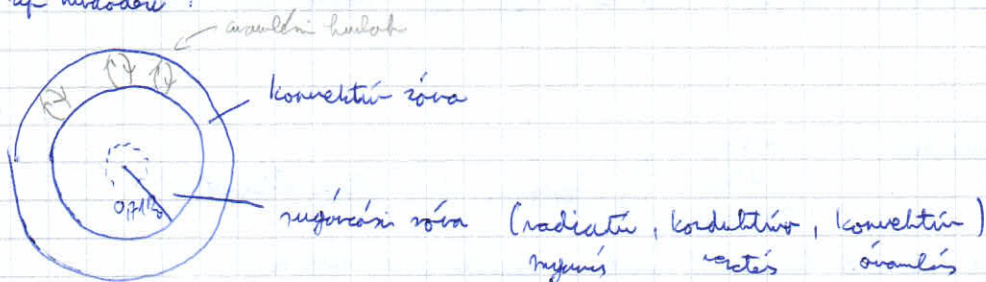 áramlási hurkok
konvektív zóna
0,71 R
sugárzási zóna (radiatív, konduktív, konvektív)
vezetés áramlás